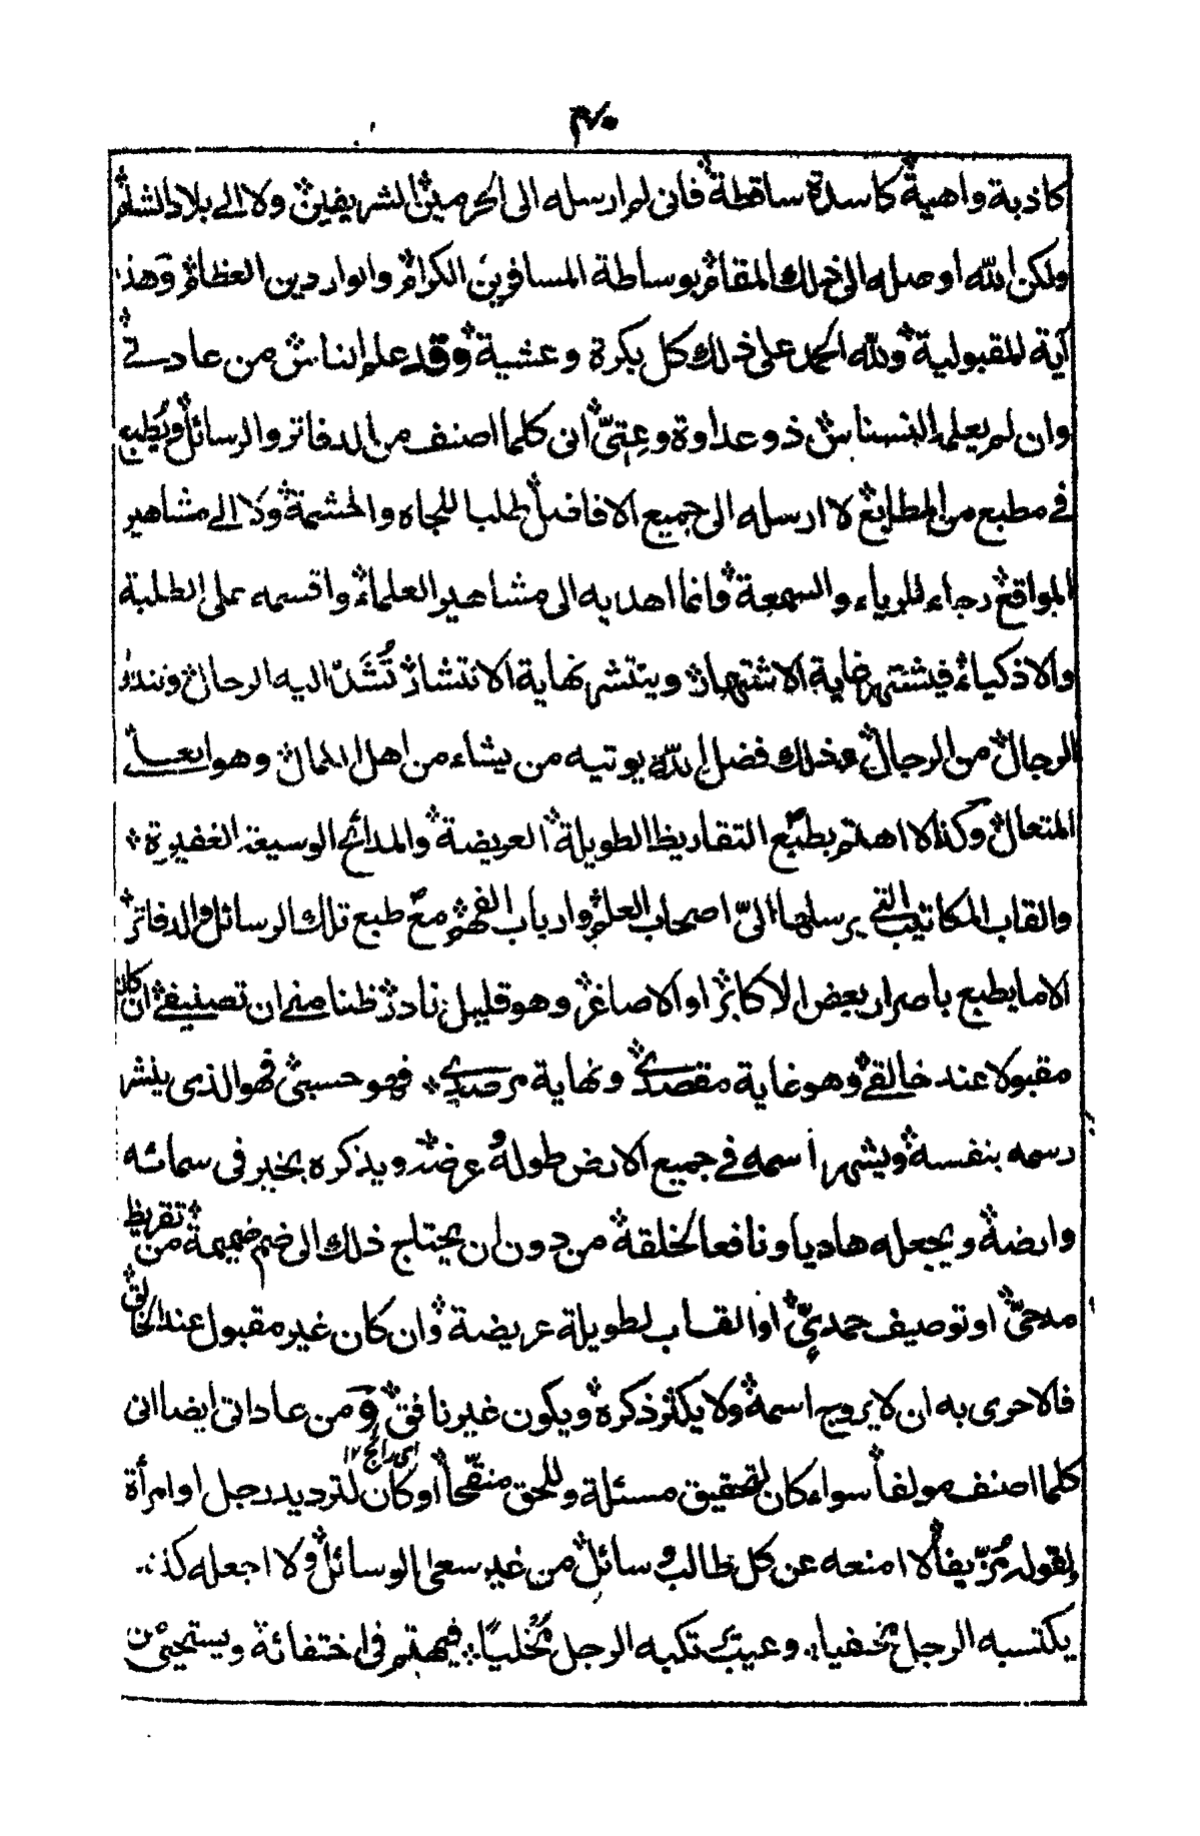 ٤٠
كاذبة واهية كاسدة ساقطة فانى لم ارسله الى الحرمين الشريفين ولا الى بلاد الشام
ولكن الله اوصله الى ذلك المقام بوساطة المسافرين الكرام والواردين العظام وهذا
آية المقبولية ولله الحمد على ذلك كل بكرة وعشية وقد علم الناس من عادتى
وان لم يعلمه النسناس ذو عداوة وعتىّ انى كلما اصنف من الدفاتر والرسائل ويُطبع
فى مطبع من المطابع لا ارسله الى جميع الافاضل طلبا للجاه والحشمة ولا الى مشاهير
المواقع رجاء للرياء والسمعة وانما اهديه الى مشاهير العلماء واقسمه على الطلبة
والاذكياء فيشتهر غاية الاشتهار وينتشر نهاية الانتشار تُشَدّ اليه الرحال
الرجال من الرجال وذلك فضل الله يوتيه من يشاء من اهل الكمال وهو
المتعال وكذا لا اهتم بطبع التقاريظ الطويلة العريضة والمدائح الوسيعة الغفيرة
والقاب المكاتيب التى يرسلها الىّ اصحاب العلم وارباب الفهم مع طبع تلك الرسائل والدفاتر
الا ما يطبع باصرار بعض الاكابر او الاصاغر وهو قليل نادر ظنا منى ان تصنيفى ان كان
مقبولا عند خالقى وهو غاية مقصدى ونهاية مرصدى فهو حسبى فهو الذى ينشر
رسمه بنفسه ويشهر اسمه فى جميع الارض طوله وعرضه ويذكره بخير فى سمائه
وارضه ويجعله هاديا ونافعا لخلقه من دون ان يحتاج ذلك الى ضم ضميمة من تقريظ
مدحىّ او توصيف حمدىّ او القاب لطويلة عريضة وان كان غير مقبول عند الخالق
فالاحرى به ان لا يروج اسمه ولا يكثر ذكره ويكون غير نافق ومن عاداتى ايضا انى
اى رائج ١٢
كلما اصنف مولفا سواء كان لتحقيق مسئلة وللحق منقّحا او كان لترديد رجل او امرأة
ولقوله مُزيفا لا امنعه عن كل طالب وسائل من غير سعى الوسائل ولا اجعله كذنب
يكتسبه الرجل مخفيا وعيب تكبه الرجل مُخليا فيهتم فى اختفائه ويستحيى من